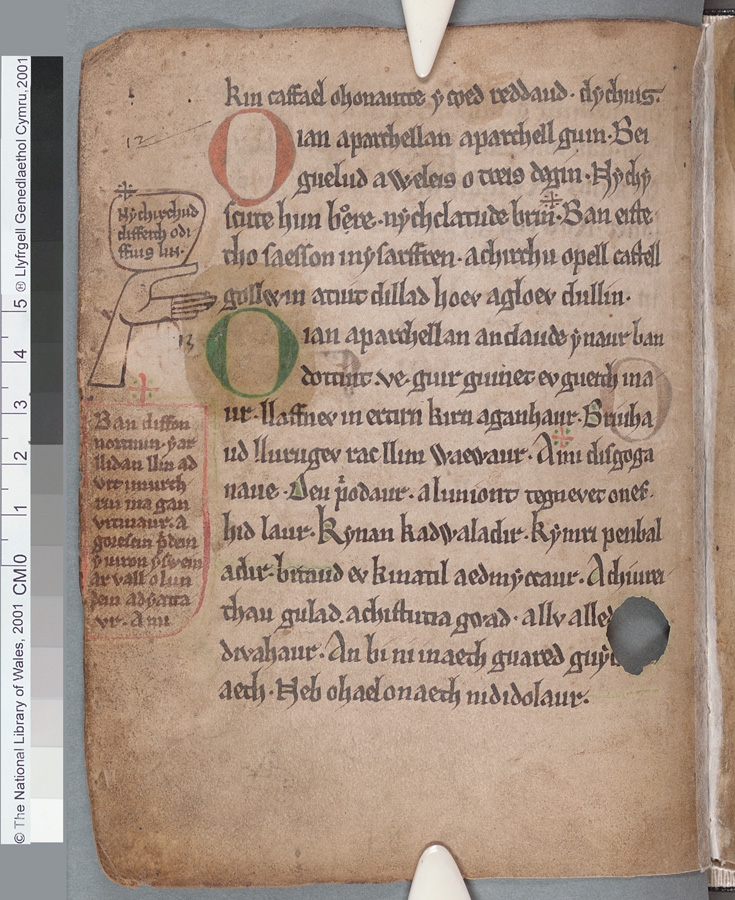 kin caffael ohonautte y coed reddaud. dychuis.
Oian aparchellan aparchell guin. Bei
guelud a weleis o treis degin. Nychy
scute hun bore. nychclatude brin. Ban eiste
tho saesson in y sarffren. achirchu o pell castell
gollwin atuit dillad hoev agloev dullin.
Oian aparchellan anclaude ynaur ban
dottint. ve. guir guinet ev gueith ma
ur. llaffnev in ertirn kirn aganhaur. Briuha
ud llurugev rac llim waewaur. A mi disgoga
naue. deu priodaur. a luniont tegnevet o nef.
hid laur. kynan kadwaladir. kymri penbal
adir. bitaud ev kinatil aedmyccaur. A chiwrei
thau gulad. achistutia goad. a llv alled
divahaur. An bi ni inaeth guared guy
aeth. Neb o hael o naeth ni didolaur.
12
Nychirchud
diffeith odi
ffuis lin.
13
Ban diffon
nortmin. y ar
llidan llin ad
vit imurth
rin in agan
vituaur. A
goresein pridein
y wiron ysswein
ar vall o lun
dein ad
vr. A mi
© The National Library of Wales, 2001 CM 0 1 2 3 4 5 ® Llyfrgell Genedlaethol Cymru, 2001